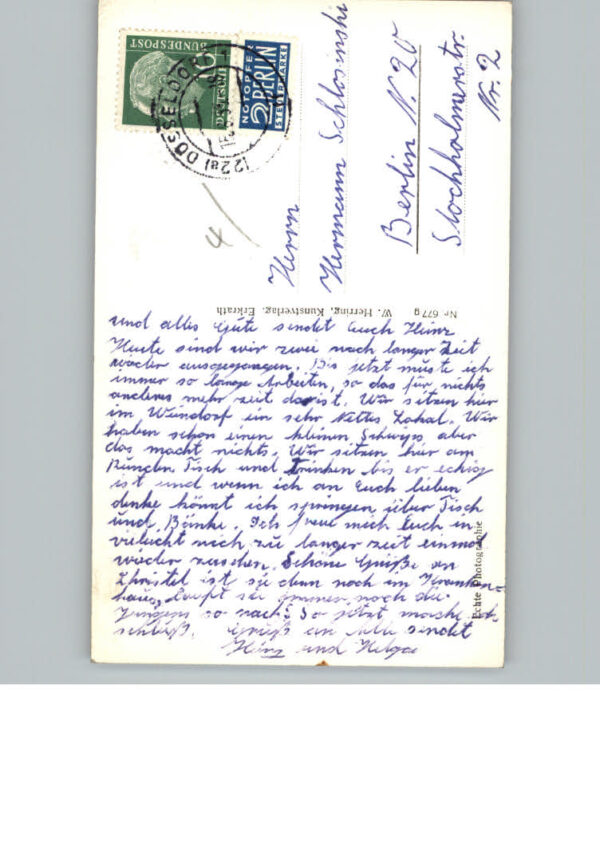 DEUTSCHE
BUNDESPOST
10
NOTOPFER
2 BERLIN
STEUERMARKE
(22a) DÜSSELDORF
4
Herrn
Hermann Schlosinski
Berlin N. 20
Stockholmerstr.
Nr. 2
Nr. 677 g
W. Herring, Kunstverlag, Erkrath
Echte Photographie
und alles Gute sendet Euch Heinz
Heute sind wir zwei nach langer Zeit
wieder ausgegangen. Bis jetzt muste ich
immer so lange Arbeiten, so das für nichts
anderes mehr zeit da ist. Wir sitzen hier
im Weindorf ein sehr Nettes Lokal. Wir
haben schon einen kleinen Schwips aber
das macht nichts. Wir sitzen hier am
Runden Tisch und trinken bis er eckig
ist und wenn ich an Euch lieben
denke könnt ich springen über Tisch
und Bänke. Ich freue mich Euch in
vieleicht nich zu langer zeit einmal
wieder zusehen. Schöne Grüße an
Christel ist sie denn noch im Kranken-
haus, läuft sie immer noch die
Jungens so nach? So jetzt mache ich
schluß. Gruß an Alle sendet
Heinz und Helga